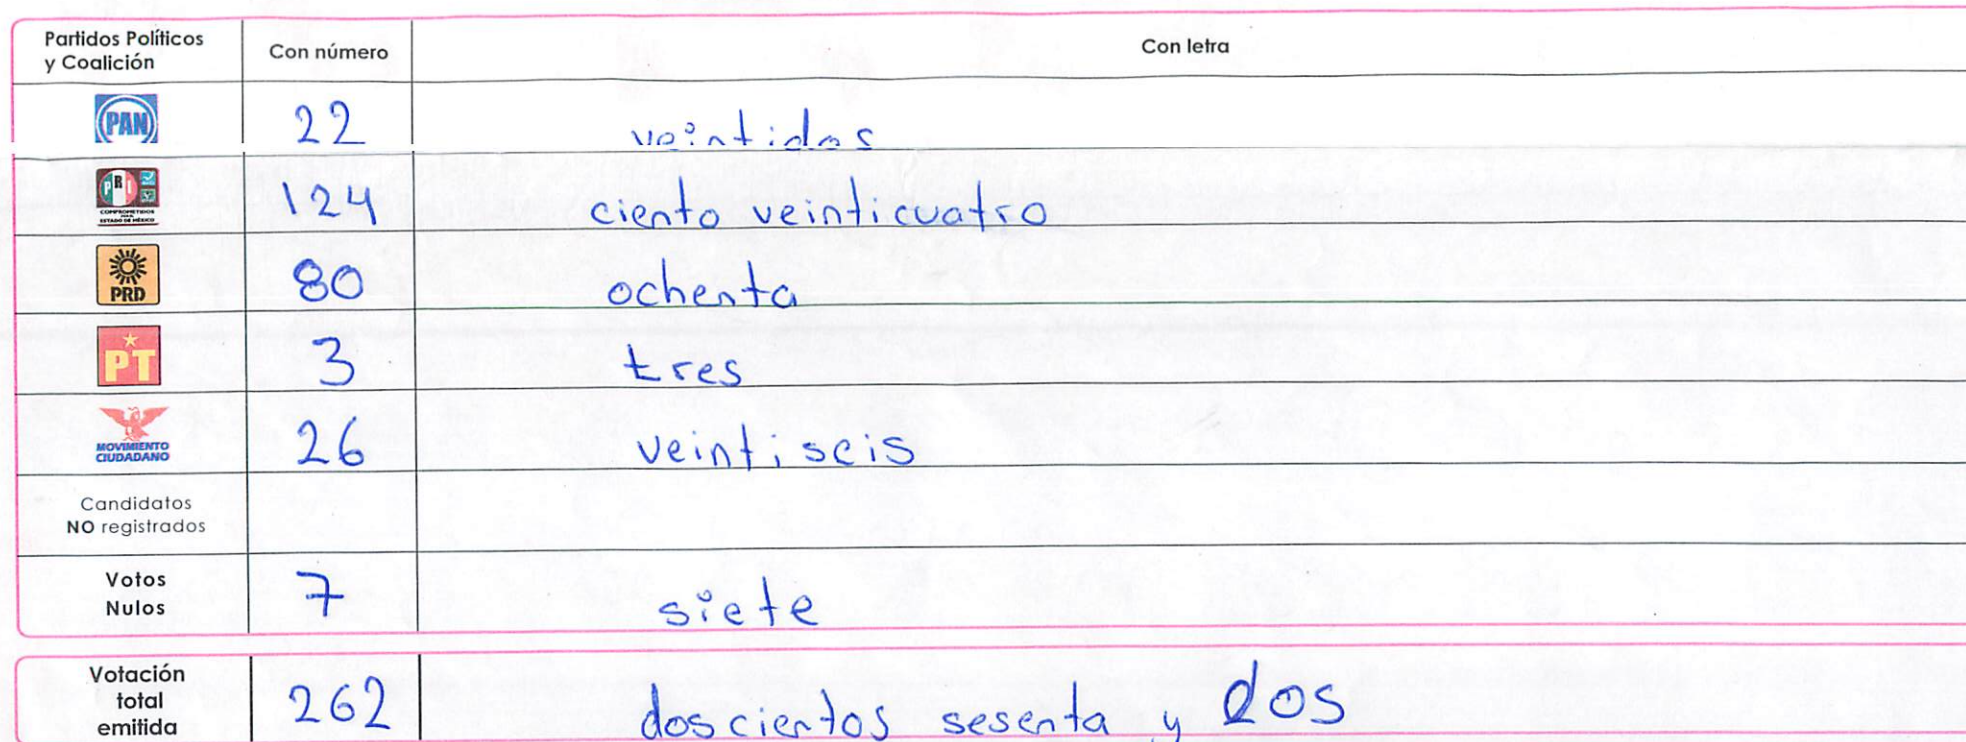 Partidos Políticos y Coalición Con número Con letra
PAN 22 veintidos
PRI COMPROMETIDOS ESTADO DE MÉXICO 124 ciento veinticuatro
PRD 80 ochenta
PT 3 tres
MOVIMIENTO CIUDADANO 26 veintiseis
Candidatos NO registrados
Votos Nulos 7 siete
Votación total emitida 262 doscientos sesenta y dos